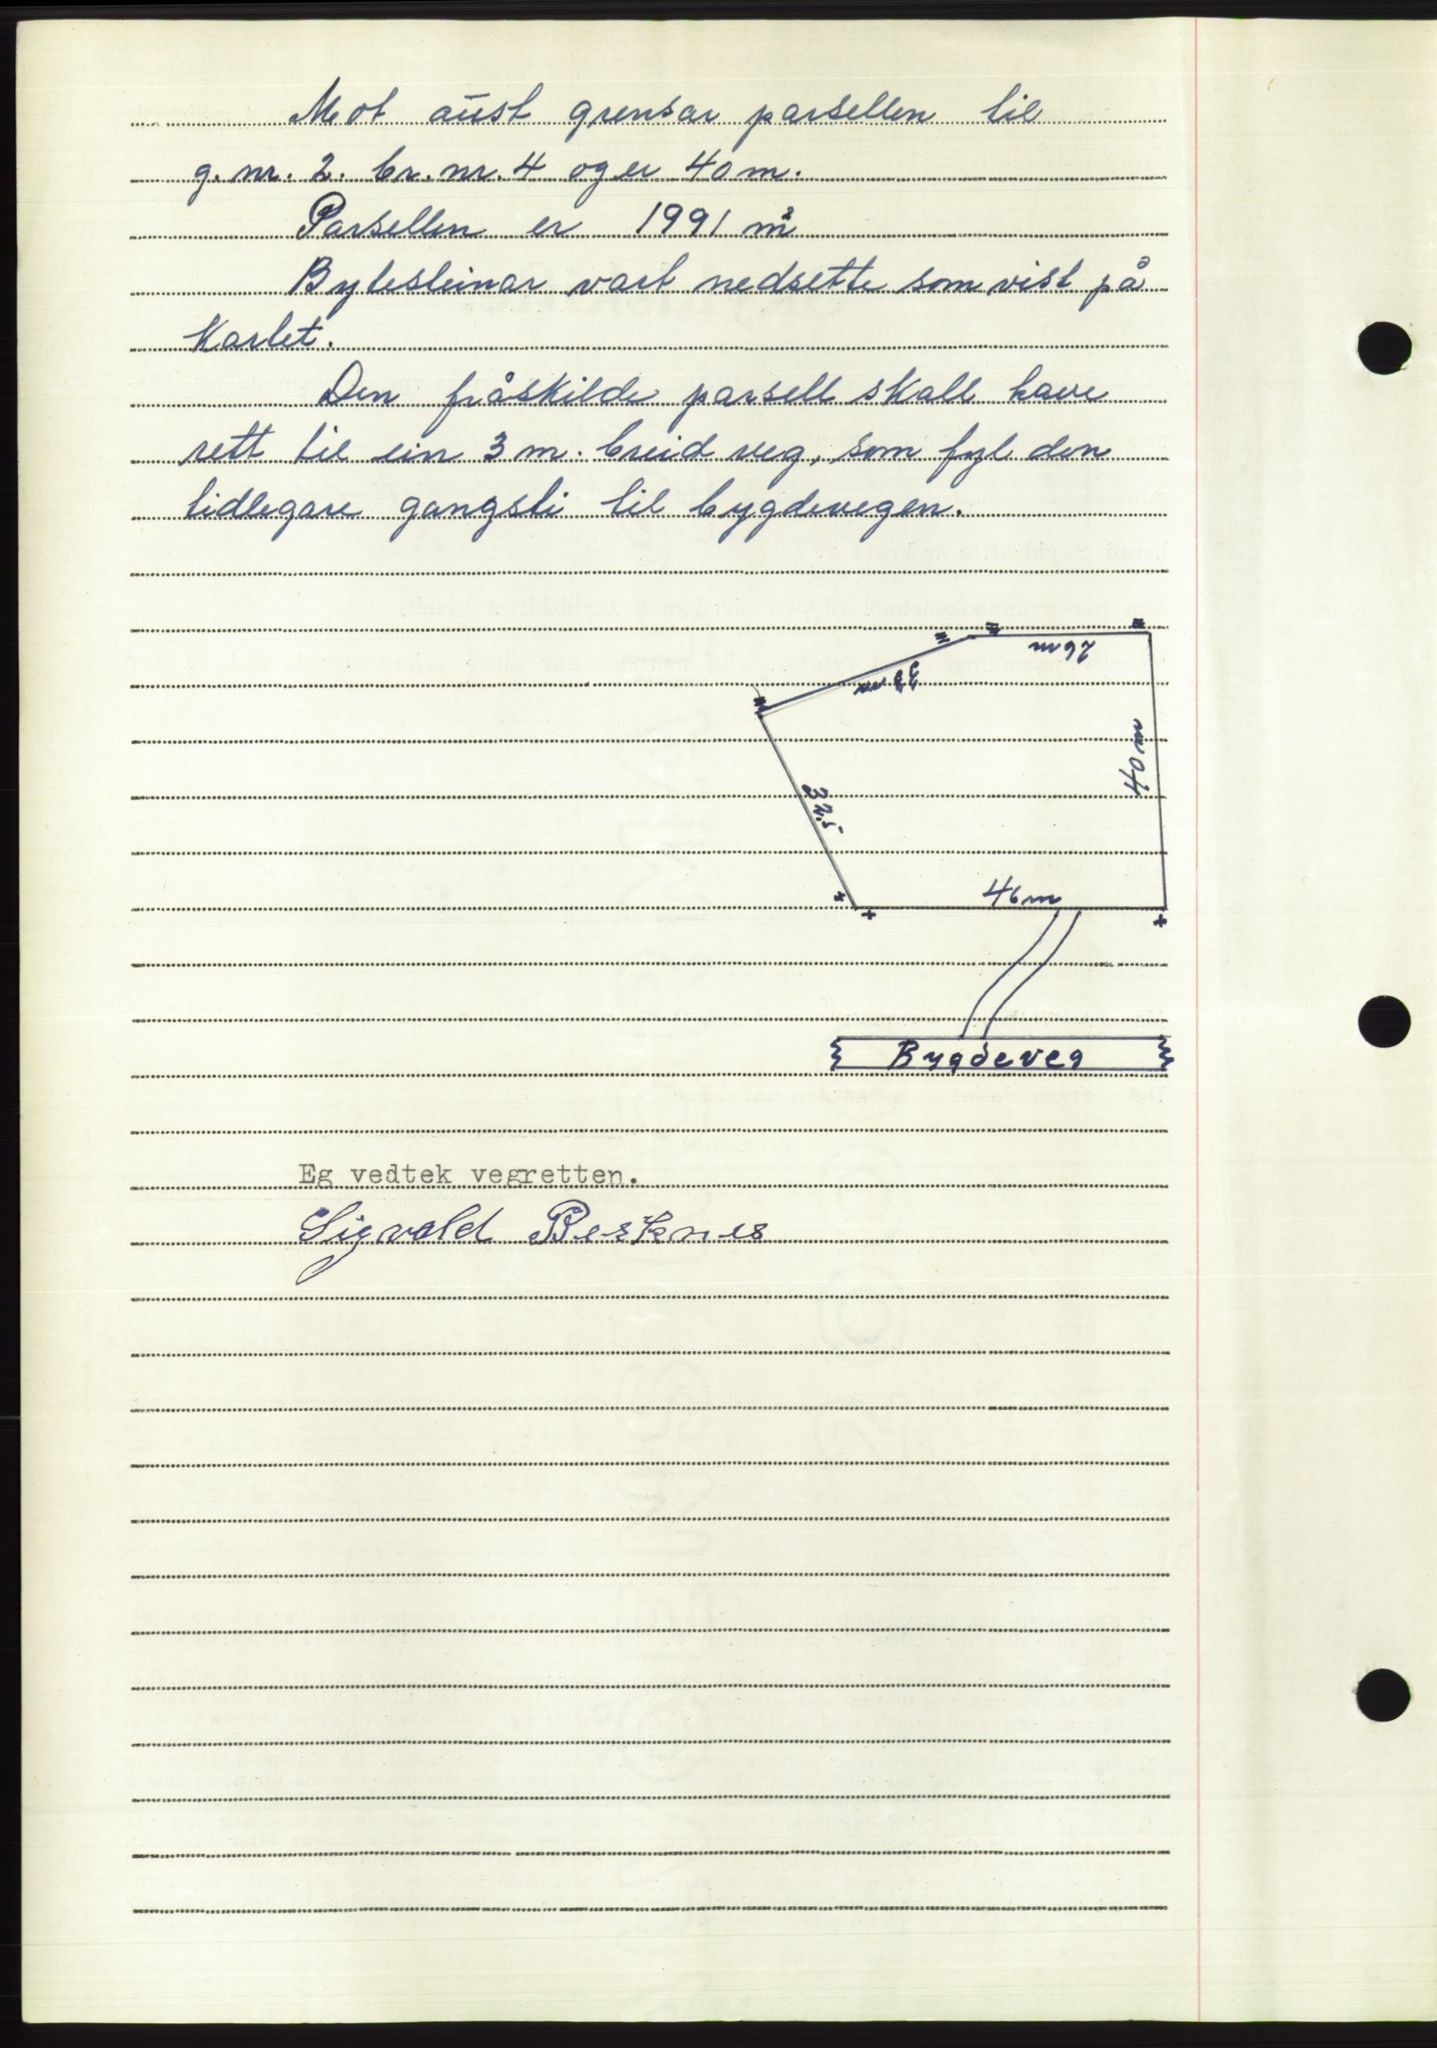 Mot aust grensar parsellen til
g. nr. 2. br. nr. 4 og er 40 m.
Parsellen er 1991 m²
Bytesteinar vart nedsette som vist på
kartet.
Den fråskilde parsell skall have
rett til ein 3 m. breid veg, som fyl den
tidlegare gangsti til bygdevegen.
26m
33 m
40 m
32,5
46 m
Bygdeveg
Eg vedtek vegretten.
Sigvald